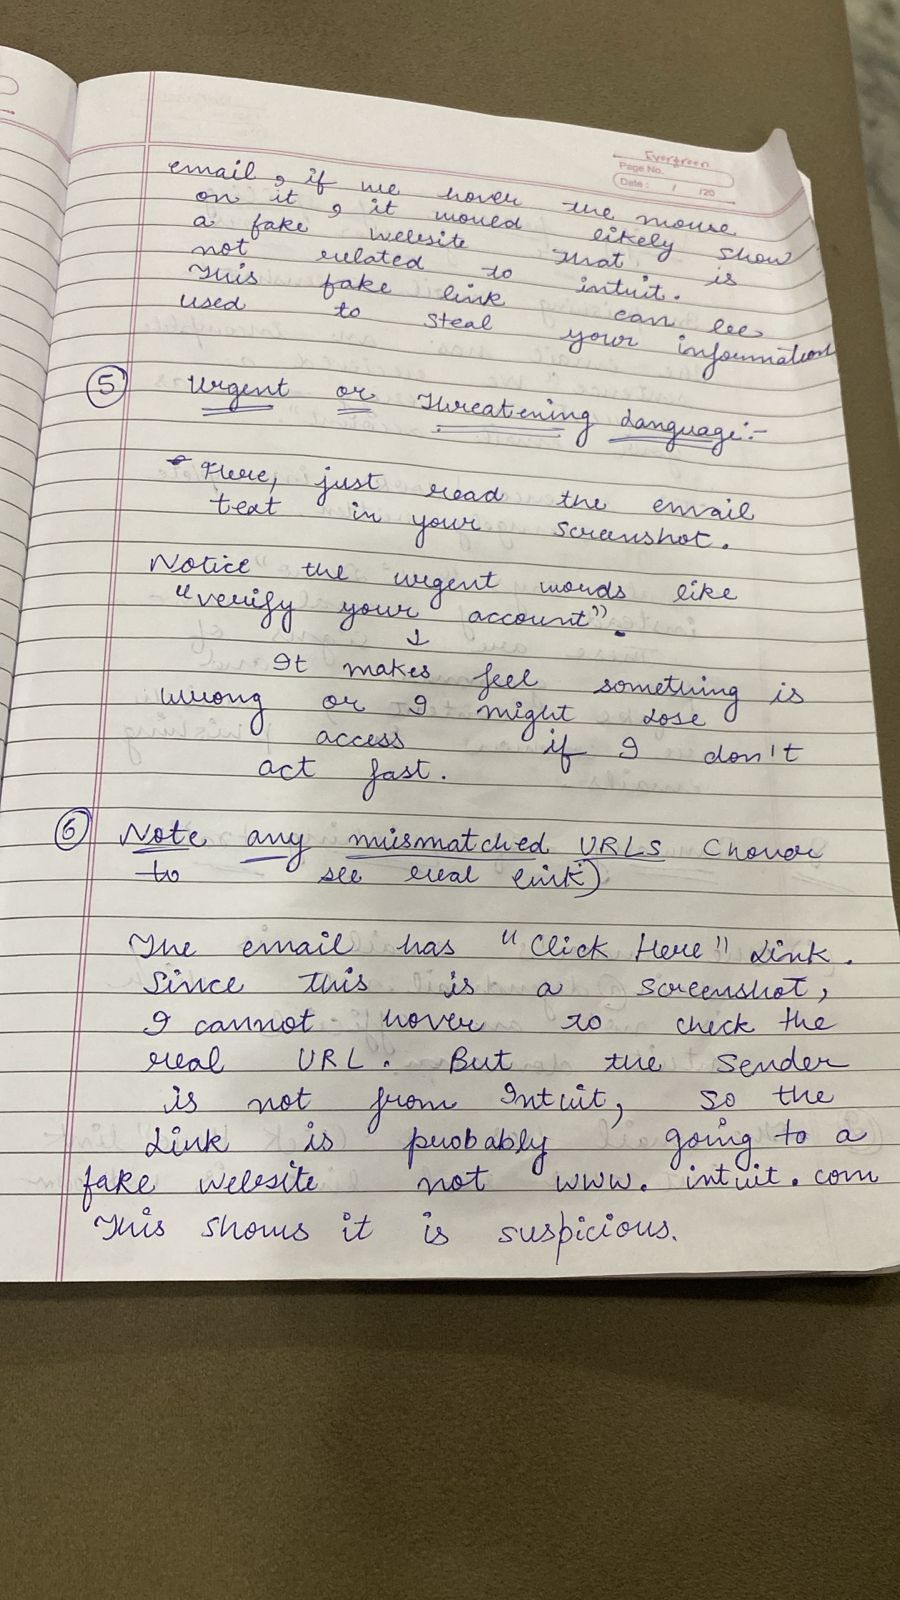 Evergreen
Page No.
Date: / /20
email, if we hover the mouse
on it, it would likely show
a fake website that is
not related to intuit.
This fake link can be
used to steal your information
5 Urgent or Threatening Language:-
Here, just read the email
text in your screenshot.
Notice the urgent words like
"verify your account".
↓
It makes feel something is
wrong or I might lose
access if I don't
act fast.
6 Note any mismatched URLS (hover
to see real link)
The email has "Click Here" Link.
Since this is a screenshot,
I cannot hover to check the
real URL. But the Sender
is not from Intuit, so the
Link is probably going to a
fake website not www.intuit.com
This shows it is suspicious.